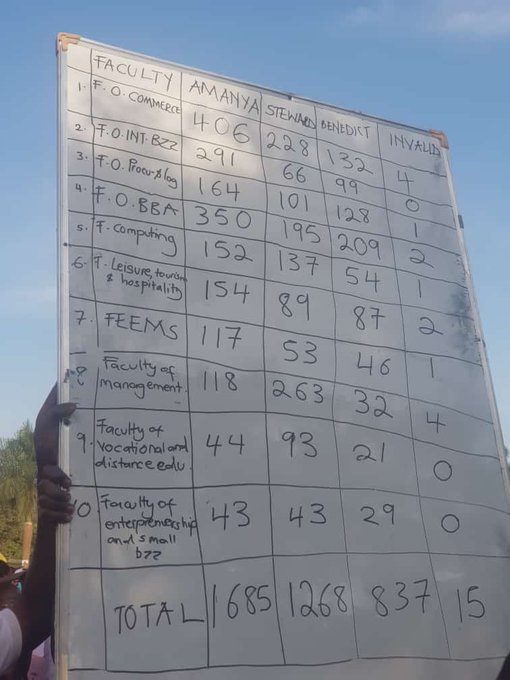 FACULTY AMANYA STEWARD BENEDICT INVALID
1. F.O.COMMERCE 406 228 132 4
2. F.O.INT.BZZ 291 66 99 0
3. F.O.Procu-&log 164 101 128 1
4. F.O.BBA 350 195 209 2
5. F. Computing 152 137 54 1
6. F. Leisure, tourism
& hospitality 154 89 87 2
7. FEEMS 117 53 46 1
8 Faculty of
management. 118 263 32 4
9. Faculty of
vocational and
distance edu. 44 93 21 0
10 Faculty of
enterprenuership
and small
bzz 43 43 29 0
TOTAL 1685 1268 837 15